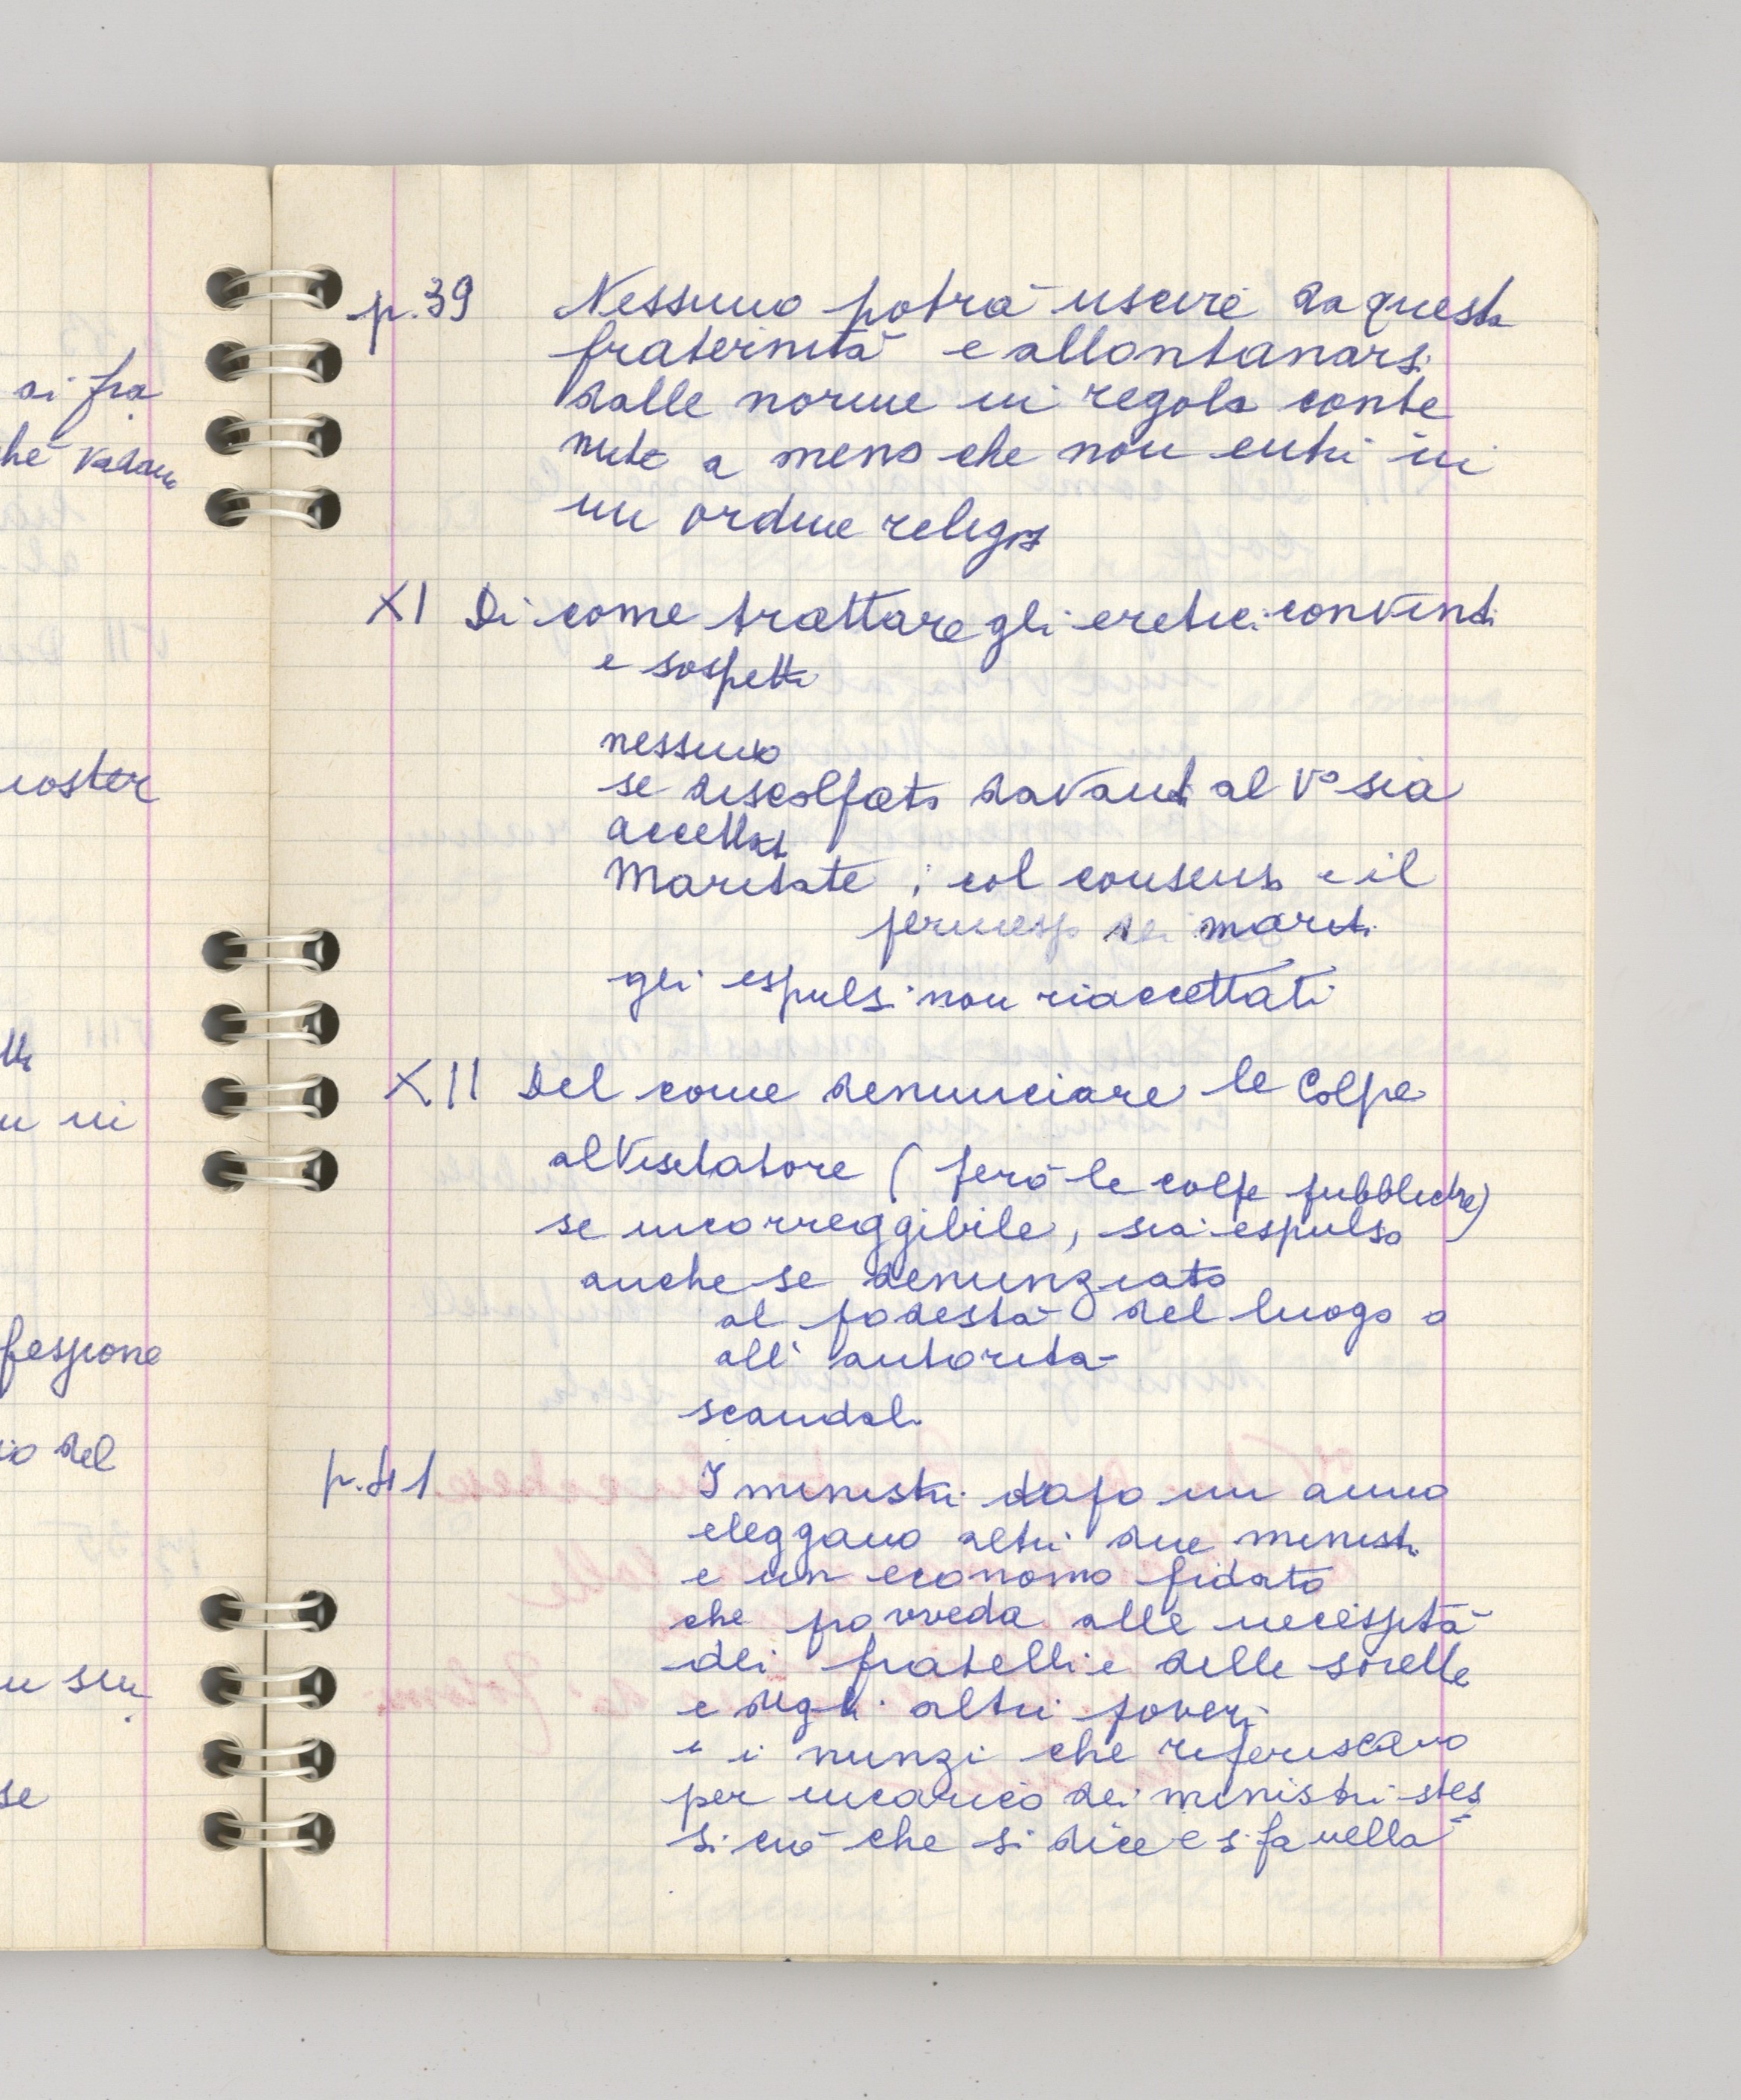 ai fra
che vadano
noster
tti
n in
fessione
io del
u su
se
p. 39 Nessuno potrà uscire da questa
fraternità e allontanarsi
dalle norme in regola conte
nute a meno che non entri in
un ordine religos
XI Di come trattare gli eretici convinti
e sospetti
nessuno
se discolpato davanti al Vº sia
accettat
Maritate ; col consenso e il
permesso dei mariti
gli espulsi non riaccettati
XII Del come denunciare le Colpe
al Visitatore ( però le colpe pubbliche )
se incorreggibile, sia espulso
anche se denunziato
al podestà del luogo o
all' autorità
scandali
p. 41 I ministri dopo un anno
eleggano altri due ministri
e un economo fidato
che provveda alle necessità
dei fratelli e delle sorelle
e degli altri poveri
e i nunzi che riferiscano
per incarico dei ministri stes
si ciò che si dice e si fa nella